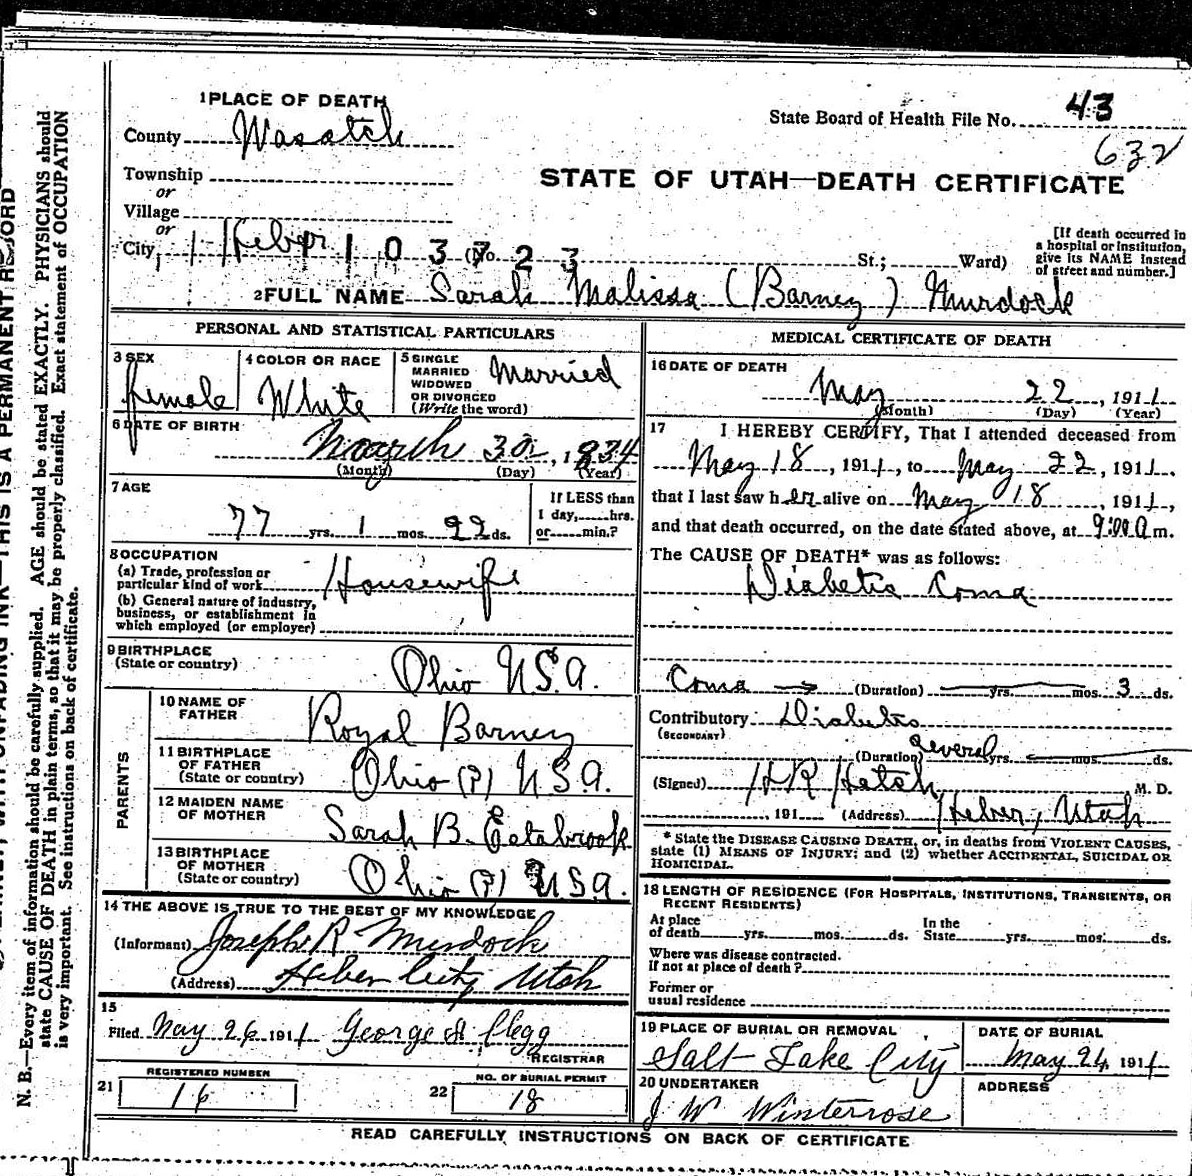 1 PLACE OF DEATH
State Board of Health File No. 43
County Wasatch
632
Township
or
STATE OF UTAH—DEATH CERTIFICATE
Village
or
City Heber (No. St.; Ward)
1103723
[If death occurred in a hospital or institution, give its NAME instead of street and number.]
2 FULL NAME Sarah Malissa (Barney) Murdock
PERSONAL AND STATISTICAL PARTICULARS
3 SEX female
4 COLOR OR RACE White
5 SINGLE MARRIED WIDOWED OR DIVORCED (Write the word) Married
6 DATE OF BIRTH
March 30, 1834
(Month) (Day) (Year)
7 AGE
77 yrs. 1 mos. 22 ds.
If LESS than
1 day,......hrs.
or......min.?
8 OCCUPATION
(a) Trade, profession or
particular kind of work Housewife
(b) General nature of industry,
business, or establishment in
which employed (or employer)
9 BIRTHPLACE
(State or country) Ohio U.S.A.
PARENTS
10 NAME OF
FATHER Royal Barney
11 BIRTHPLACE
OF FATHER
(State or country) Ohio (?) U.S.A.
12 MAIDEN NAME
OF MOTHER Sarah B. Estabrook
13 BIRTHPLACE
OF MOTHER
(State or country) Ohio (?) U.S.A.
14 THE ABOVE IS TRUE TO THE BEST OF MY KNOWLEDGE
(Informant) Joseph R Murdock
(Address) Heber City Utah
15
Filed May 26 1911 George A Clegg
REGISTRAR
21 REGISTERED NUMBER
16
22 NO. OF BURIAL PERMIT
18
MEDICAL CERTIFICATE OF DEATH
16 DATE OF DEATH
May 22, 1911
(Month) (Day) (Year)
17 I HEREBY CERTIFY, That I attended deceased from
May 18, 1911, to May 22, 1911,
that I last saw her alive on May 18, 1911,
and that death occurred, on the date stated above, at 9:00 a m.
The CAUSE OF DEATH* was as follows:
Diabetic Coma
Coma (Duration) yrs. mos. 3 ds.
Contributory Diabetes
(SECONDARY)
(Duration) several yrs. mos. ds.
(Signed) H R Hatch, M. D.
, 191 (Address) Heber, Utah
* State the DISEASE CAUSING DEATH, or, in deaths from VIOLENT CAUSES,
state (1) MEANS OF INJURY; and (2) whether ACCIDENTAL, SUICIDAL OR
HOMICIDAL.
18 LENGTH OF RESIDENCE (FOR HOSPITALS, INSTITUTIONS, TRANSIENTS, OR
RECENT RESIDENTS)
At place In the
of death yrs. mos. ds. State yrs. mos. ds.
Where was disease contracted.
If not at place of death?
Former or
usual residence
19 PLACE OF BURIAL OR REMOVAL
Salt Lake City
DATE OF BURIAL
May 24 1911
20 UNDERTAKER
J W Winterrose
ADDRESS
READ CAREFULLY INSTRUCTIONS ON BACK OF CERTIFICATE
WITH UNFADING INK—THIS IS A PERMANENT RECORD
N. B.—Every item of information should be carefully supplied. AGE should be stated EXACTLY. PHYSICIANS should
state CAUSE OF DEATH in plain terms, so that it may be properly classified. Exact statement of OCCUPATION
is very important. See instructions on back of certificate.